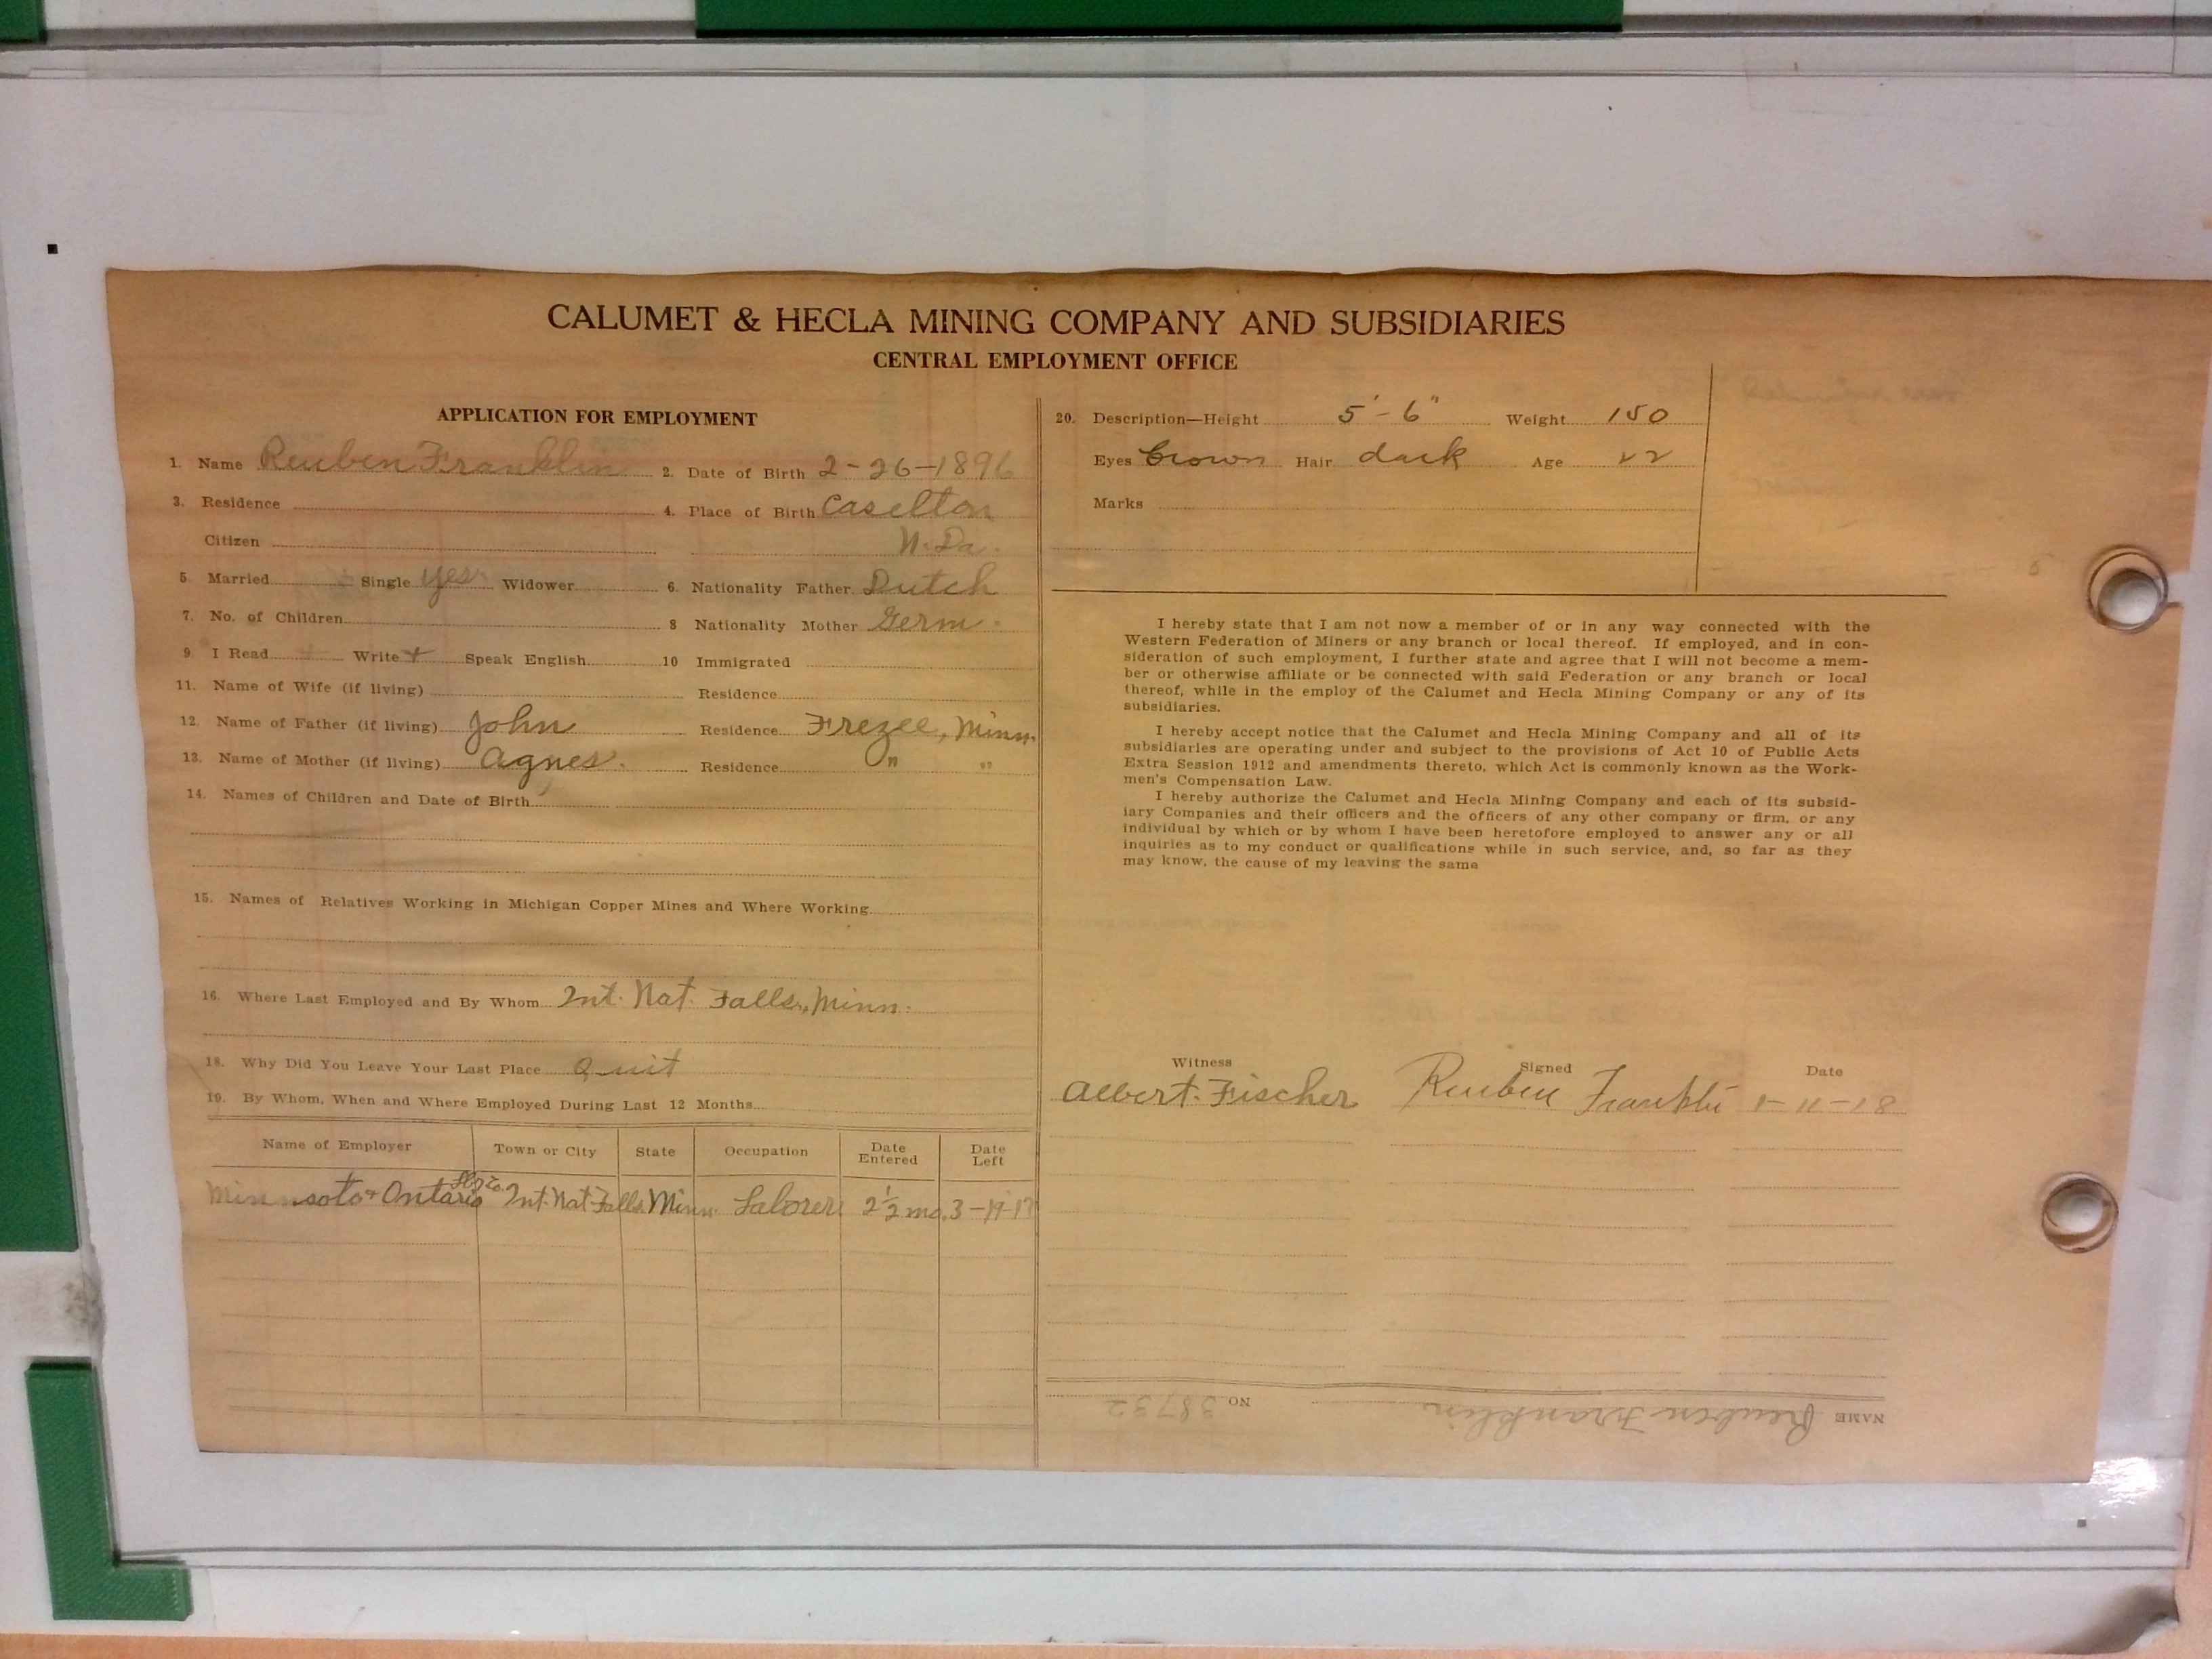 CALUMET & HECLA MINING COMPANY AND SUBSIDIARIES
CENTRAL EMPLOYMENT OFFICE
APPLICATION FOR EMPLOYMENT
1. Name Reuben Franklin 2. Date of Birth 2-26-1896
3. Residence 4. Place of Birth Caselton
Citizen N. Da.
5. Married Single yes Widower 6. Nationality Father Dutch
7. No. of Children 8 Nationality Mother Germ.
9 I Read + Write + Speak English 10 Immigrated
11. Name of Wife (if living) Residence
12. Name of Father (if living) John Residence Frezee, Minn.
13. Name of Mother (if living) Agnes. Residence " "
14. Names of Children and Date of Birth
15. Names of Relatives Working in Michigan Copper Mines and Where Working
16. Where Last Employed and By Whom Int. Nat. Falls, Minn.
18. Why Did You Leave Your Last Place Quit
19. By Whom, When and Where Employed During Last 12 Months
Name of Employer Town or City State Occupation Date Entered Date Left
Minnsoto & Ontario Int. Nat. Falls Minn. Laborer 2 1/2 mo.
20. Description—Height 5'-6" Weight 150
Eyes brown Hair dark Age 22
Marks
I hereby state that I am not now a member of or in any way connected with the
Western Federation of Miners or any branch or local thereof. If employed, and in con-
sideration of such employment, I further state and agree that I will not become a mem-
ber or otherwise affiliate or be connected with said Federation or any branch or local
thereof, while in the employ of the Calumet and Hecla Mining Company or any of its
subsidiaries.
I hereby accept notice that the Calumet and Hecla Mining Company and all of its
subsidiaries are operating under and subject to the provisions of Act 10 of Public Acts
Extra Session 1912 and amendments thereto, which Act is commonly known as the Work-
men's Compensation Law.
I hereby authorize the Calumet and Hecla Mining Company and each of its subsid-
iary Companies and their officers and the officers of any other company or firm, or any
individual by which or by whom I have been heretofore employed to answer any or all
inquiries as to my conduct or qualifications while in such service, and, so far as they
may know, the cause of my leaving the same
Witness Signed Date
Albert Fischer Reuben Franklin
NAME Reuben Franklin NO 38732